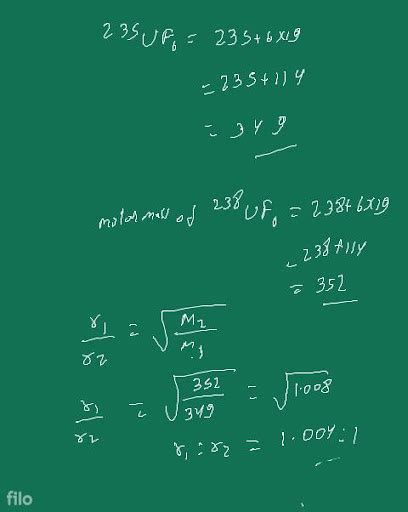 235UF6 = 235+6×19
= 235+114
= 349
molar mass of 238UF6 = 238+6×19
= 238+114
= 352
r1/r2 = √(M2/M1)
r1/r2 = √(352/349) = √1.008
r1 : r2 = 1.004 : 1
filo